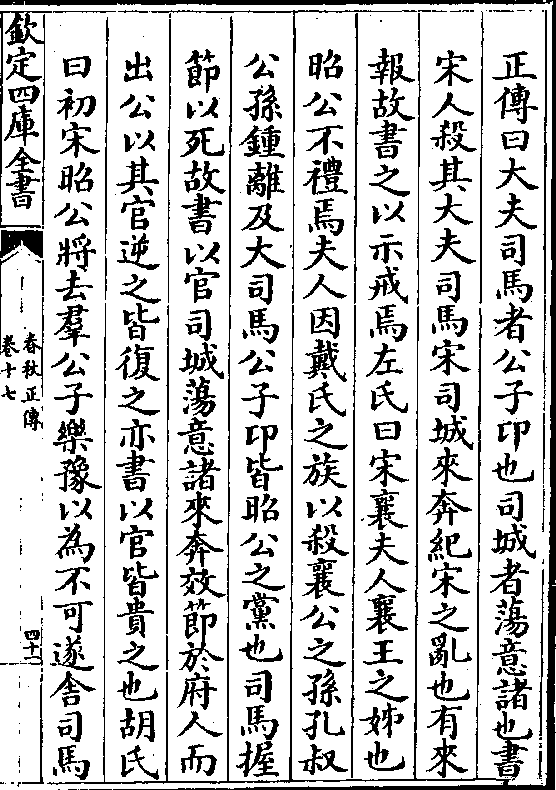 正傳曰大夫司馬者公子卬也司城者蕩意諸也書
宋人殺其大夫司馬宋司城來奔紀宋之亂也有來
報故書之以示戒焉左氏曰宋襄夫人襄王之姊也
昭公不禮焉夫人因戴氏之族以殺襄公之孫孔叔
公孫鍾離及大司馬公子卬皆昭公之黨也司馬握
節以死故書以官司城蕩意諸來奔效節於府人而
出公以其官逆之皆復之亦書以官皆貴之也胡氏
曰初宋昭公將去羣公子樂豫以為不可遂舍司馬
欽定四庫全書
春秋正傳
卷十七
四十一